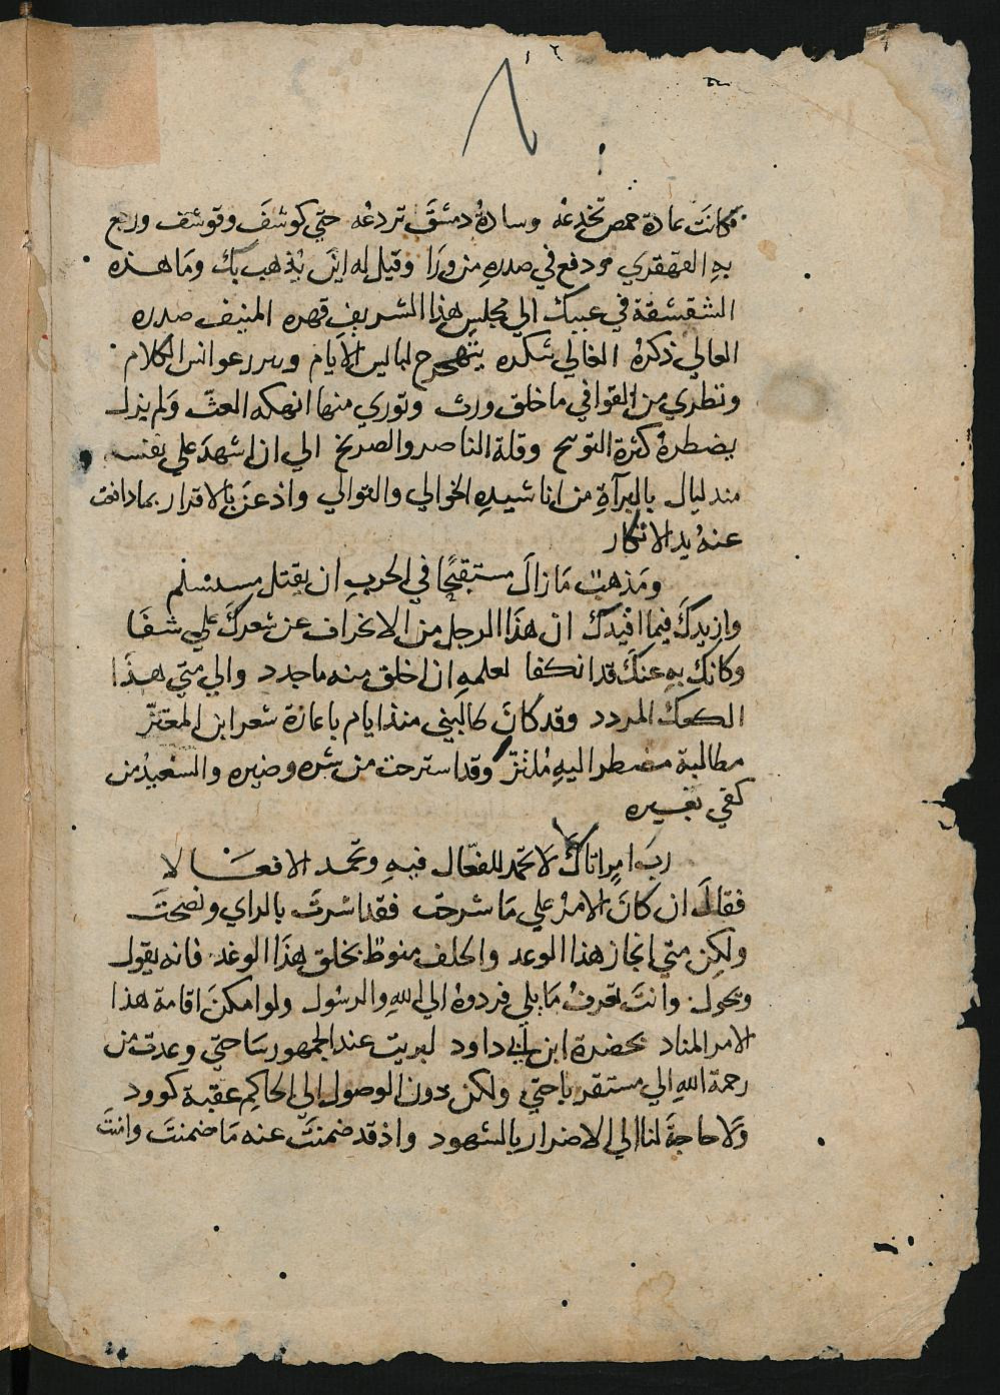 ٨
فكانَت عادة حمص تخدعه وسادةُ دمشقَ تردعُه حتي كوشفَ وقوشف ورجع
بهِ القهقري ودفع في صدرهِ من ورَا وقيل له اينَ يُذهب بك ومَا هذه
الشقشقة في عبيك الي مجلس هذا الشريفِ قهره المنيف صدره
العالي ذكرهُ الغالي شكره لباليس الايام الكلام
وتطري من القوافي ما خلق ورث وتوري منها انهكه العثّ وَلم يزل
يضطرهُ كثرة التوسح وقلة الناصر والصريخ الي ان اشهدَ علي نفسه
مند ليال بالبرآةِ من اناشيدهِ الخوالي والتوالي واذعنَ بالاقرار بما دافعت
عنهُ يد الانكار
ومَذهبي مَا زالَ مستقبَحًا في الحربِ ان يقتل مستسلم
وازيدكَ فيما افيدك ان هذَا الرجل من الانحراف عن شعركَ علي شفَا
وكانك بهِ عنكَ قد انكفا لعلمهِ ان اخلق منه ما جدد والي متي هذَا
الكعك المردد وقد كانَ طالبني منذ ايام باعادة شعر ابن المعتزّ
مطالبة مضطر اليهِ مُلتزّ وقد استرحت من شره وضيره والسعيدُ من
كفي بغيره
ربَ امرٍ اتاكَ لا تحمد الفعّال فيهِ وتحمد الافعَالا
فقالَ ان كانَ الامرُ علي مَا شرحت فقد اشرتَ بالراي ونصحتَ
ولكن متي انجاز هذا الوعد والخلف منوط بخلق هذَا الوغد فانه يقول
ويحول وأنتَ تعرفُ مَا يلي فردوهُ الي اللهِ والرسُول ولو امكنَ اقامة هذا
الامر المناد بحضرة ابن ابي داود لبريت عند الجمهور سَاحتي وعدت من
رحمة اللهِ الي مستقر باحتي ولكن دون الوصول الي الحاكم عقبة كوود
وَلا حاجةَ لنا الي الاضرار بالشهود واذ قد ضمنتَ عنه مَا ضمنتَ وانتَ